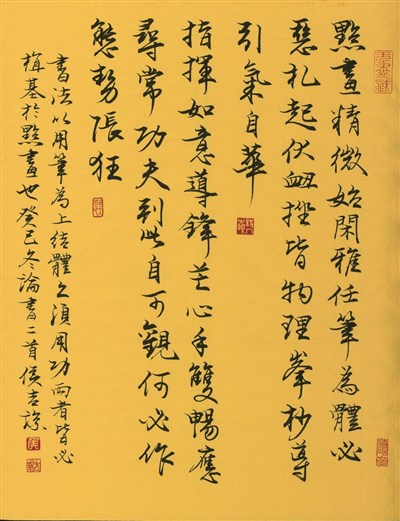 點畫精微始閑雅任筆為體必
惡札起伏衄挫皆物理峯杪導
引氣自華
指揮如意導鋒芒心手雙暢應
尋常功夫到此自可觀何必作
態勢張狂
書法以用筆為上結體亦須用功兩者皆必
植基於點畫也癸巳冬論書二首侯吉諒